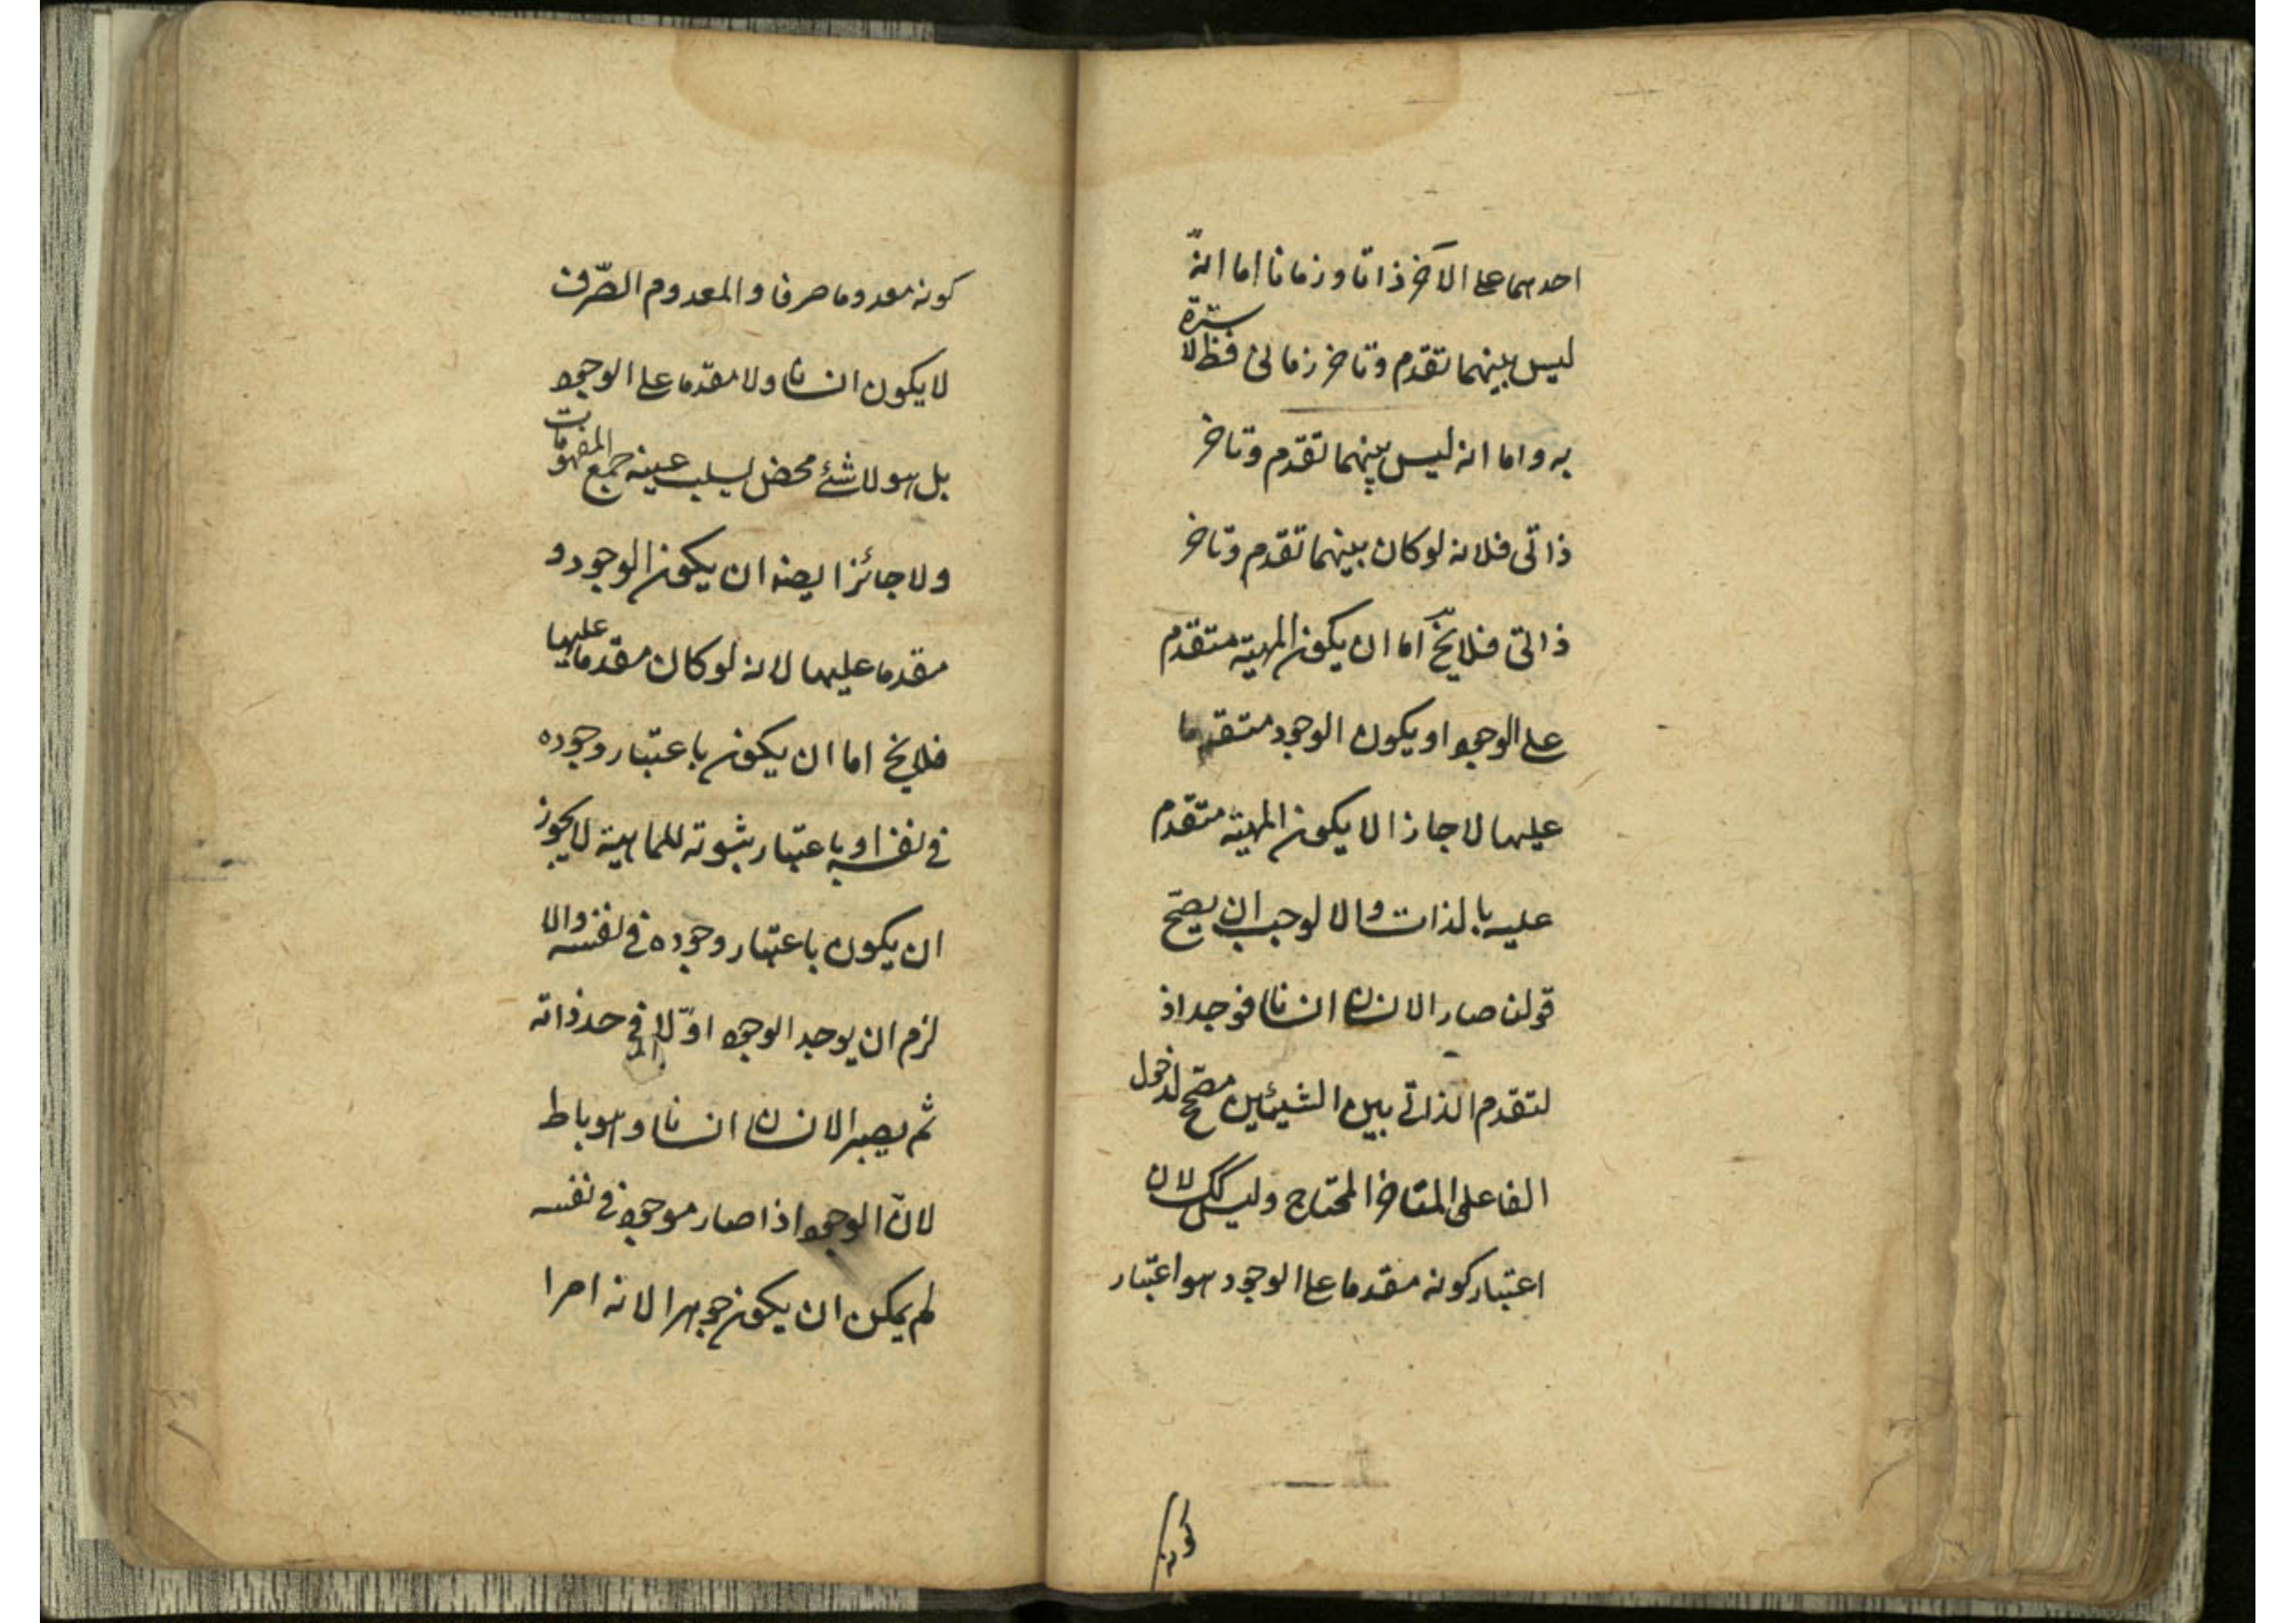 احدهما على الآخر ذاتا وزمانا اما انّه
ليس بينهما تقدم وتاخر زمانى فظ لا سترة
به واما انه ليس بينهما تقدّم وتاخر
ذاتى فلانه لو كان بينهما تقدم وتاخر
ذاتى فلا يخ اما ان يكون المهيته متقدم
على الوجود او يكون الوجود متقدما
عليها لا جازا لا يكون المهيته متقدم
عليه بالذات والا لوجب ان يصحّ
قولن صار الانسان انسانا فوجد اذ
لتقدم الذاتى بين الشيئين مصحّ لدخول
الفا على المتاخر المحتاج وليس كك لان
اعتبار كونه مقدما على الوجود هو اعتبار
كونه
كونه معدوما صرفا والمعدوم الصّرف
لا يكون انسانا ولا مقدّما على الوجود
بل هو لا شئ محض ليسلب عينه جميع المفهومات
ولا جائز ايضه ان يكون الوجود و
مقدما عليها لانه لو كان مقدما عليها
فلا يخ اما ان يكون باعتبار وجوده
فى نفسه او باعتبار ثبوته للماهية لا يجوز
ان يكون باعتبار وجوده فى نفسه والا
لزم ان يوجد الوجود اوّلا فى حد ذاته
ثم يصير الانسان انسانا وهو باط
لانّ الوجود اذا صار موجود فى نفسه
لم يمكن ان يكون جوهرا لانه امرا